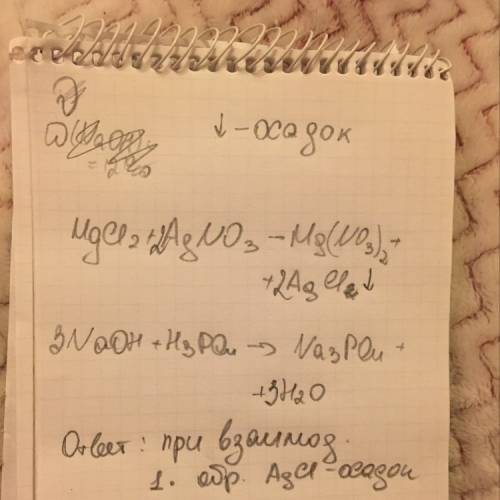 ↓ - осадок
MgCl2 + 2AgNO3 - Mg(NO3)2 +
+ 2AgCl2↓
3NaOH + H3PO4 -> Na3PO4 +
+ 3H2O
Ответ: при взаимод.
1. обр. AgCl - осадок